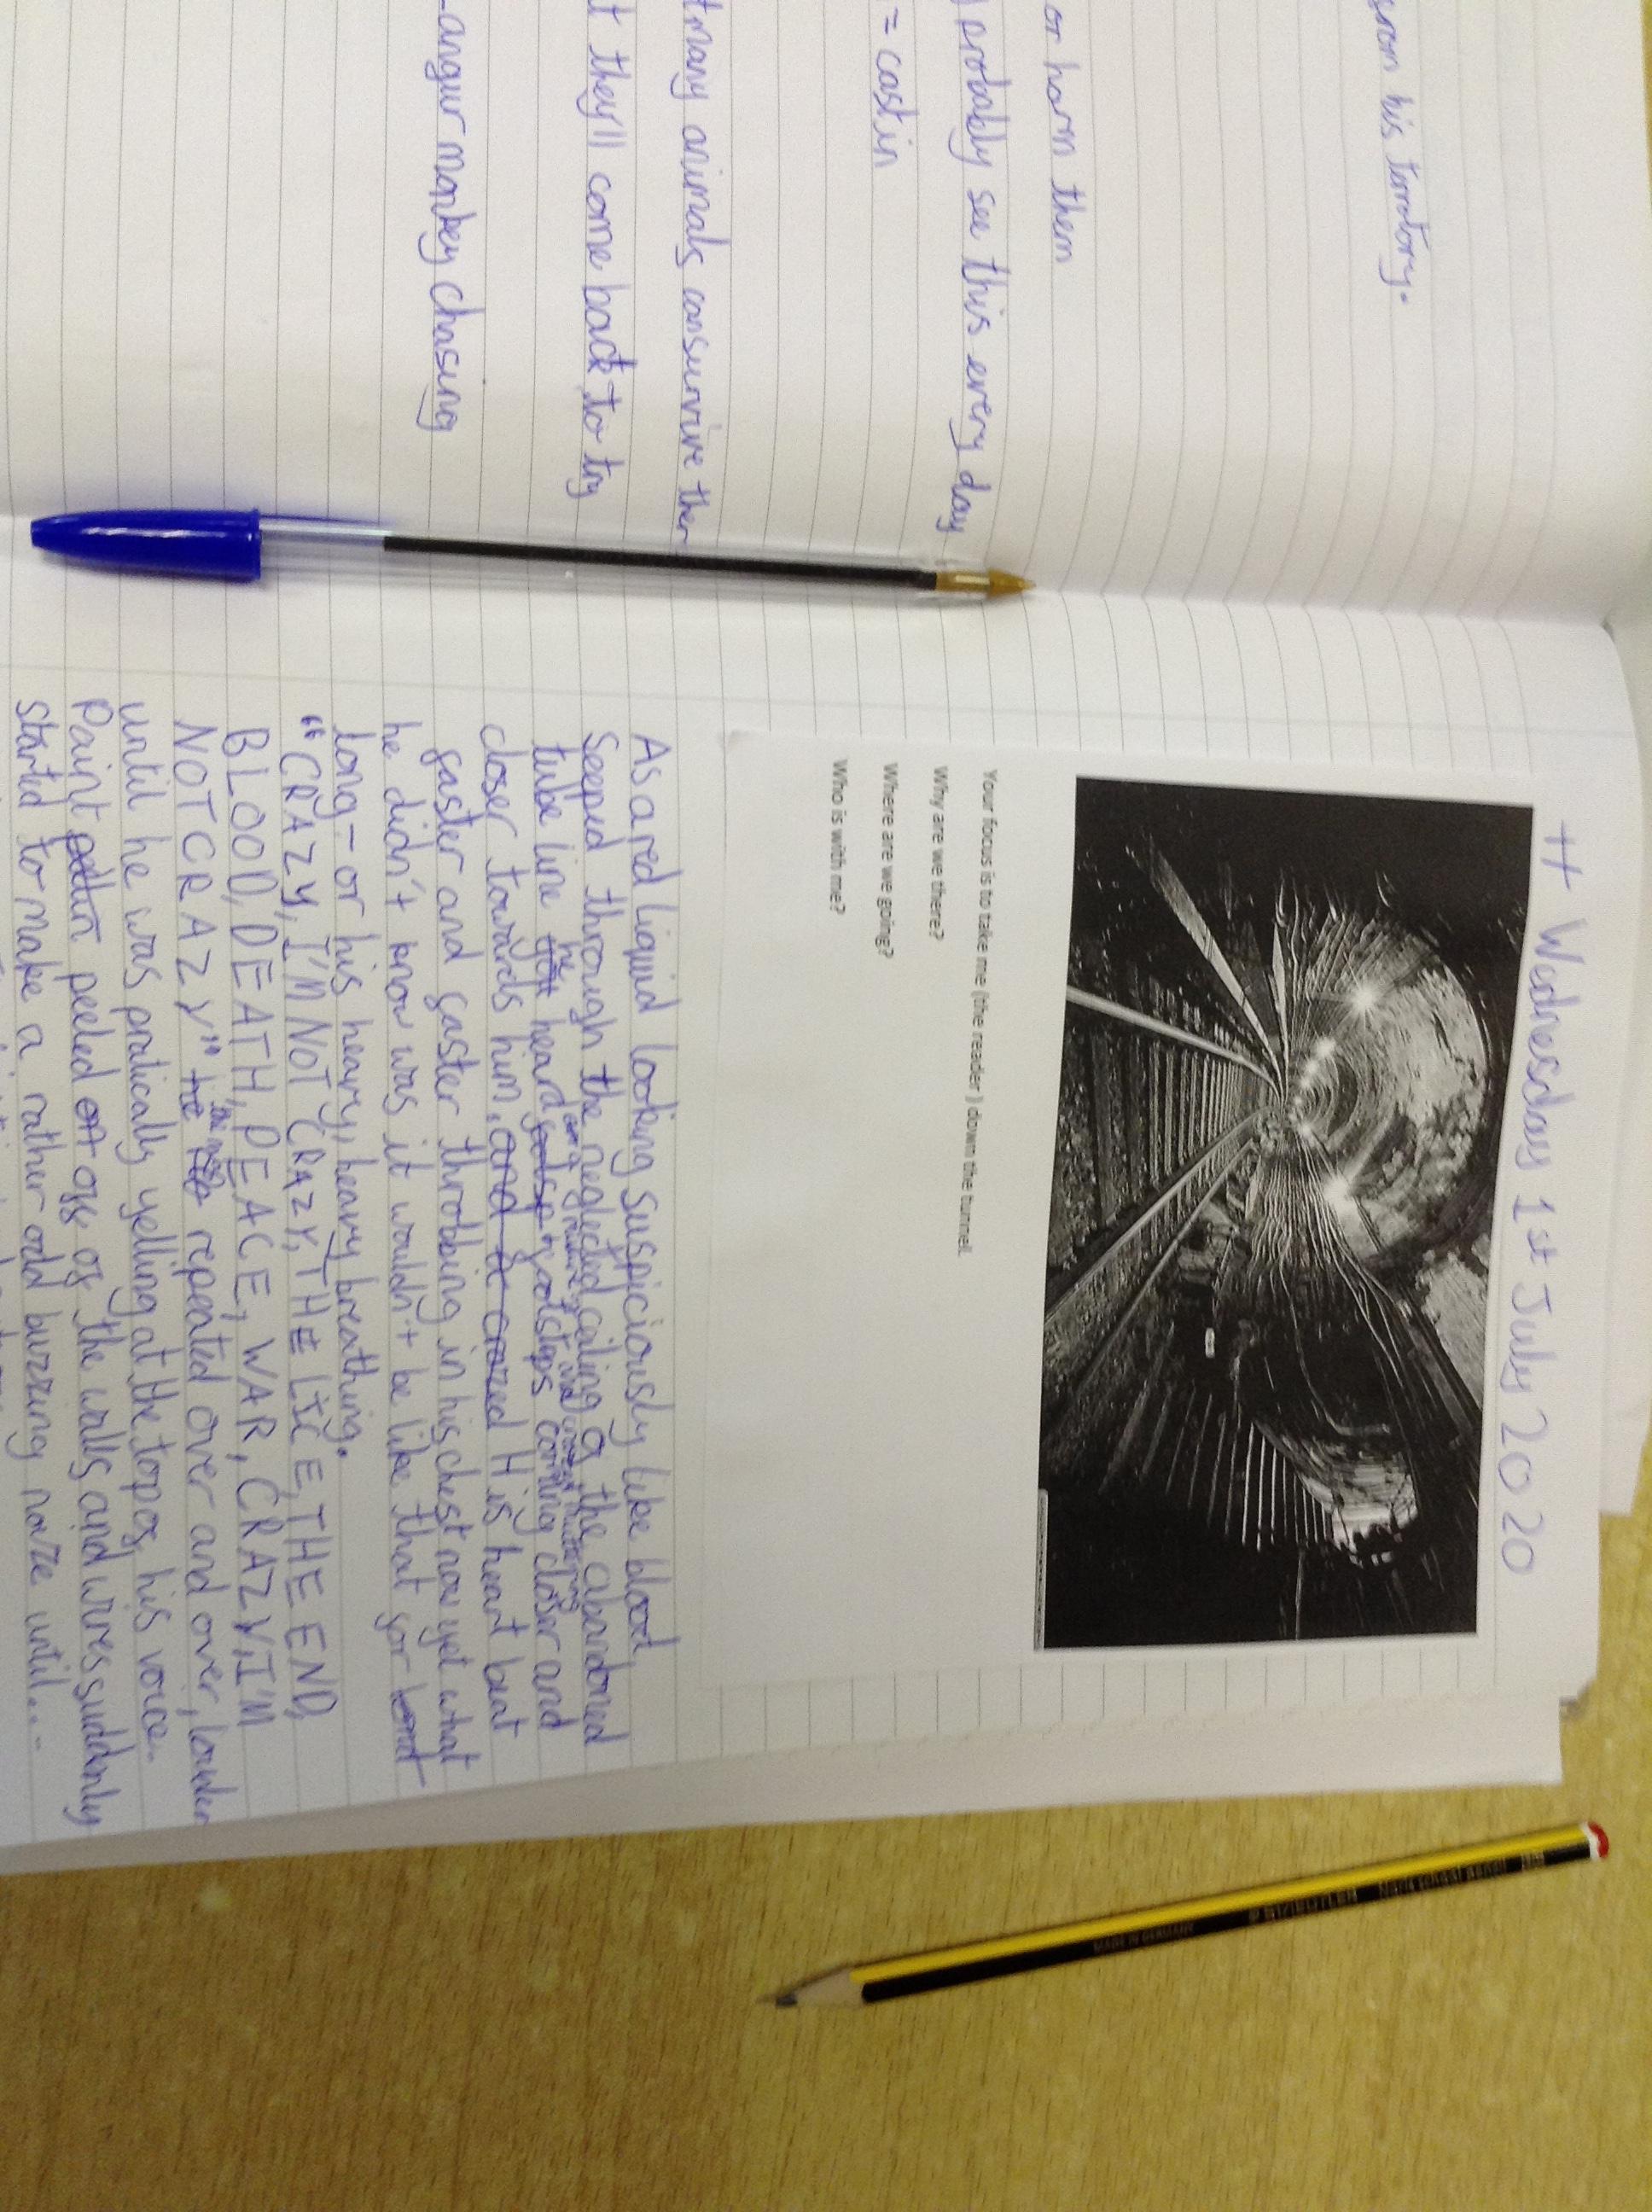 from his terratory.
or harm them
probably see this every day
= cast in
many animals can survive ther
t they'll come back to try
angur monkey chasing
H Wednesday 1st July 2020
Your focus is to take me (the reader ) down the tunnel.
Why are we there?
Where are we going?
Who is with me?
As a red liquid looking suspiciously like blood,
seeped through the neglected ceiling of the abandoned
tube line he heard footsteps coming closer and
closer towards him. His heart beat
faster and faster throbbing in his chest now yet what
he didn't know was it wouldn't be like that for
long - or his heavy, heavy breathing.
"CRAZY, I'M NOT CRAZY, THE LICE, THE END,
BLOOD, DEATH, PEACE, WAR, CRAZY, I'M
NOT CRAZY" repeated over and over, louder
until he was pratically yelling at the top of his voice.
Paint peeled off of the walls and wires suddenly
started to make a rather odd buzzing noize until....
STAEDTLER Noris school pencil HB
MADE IN GERMANY